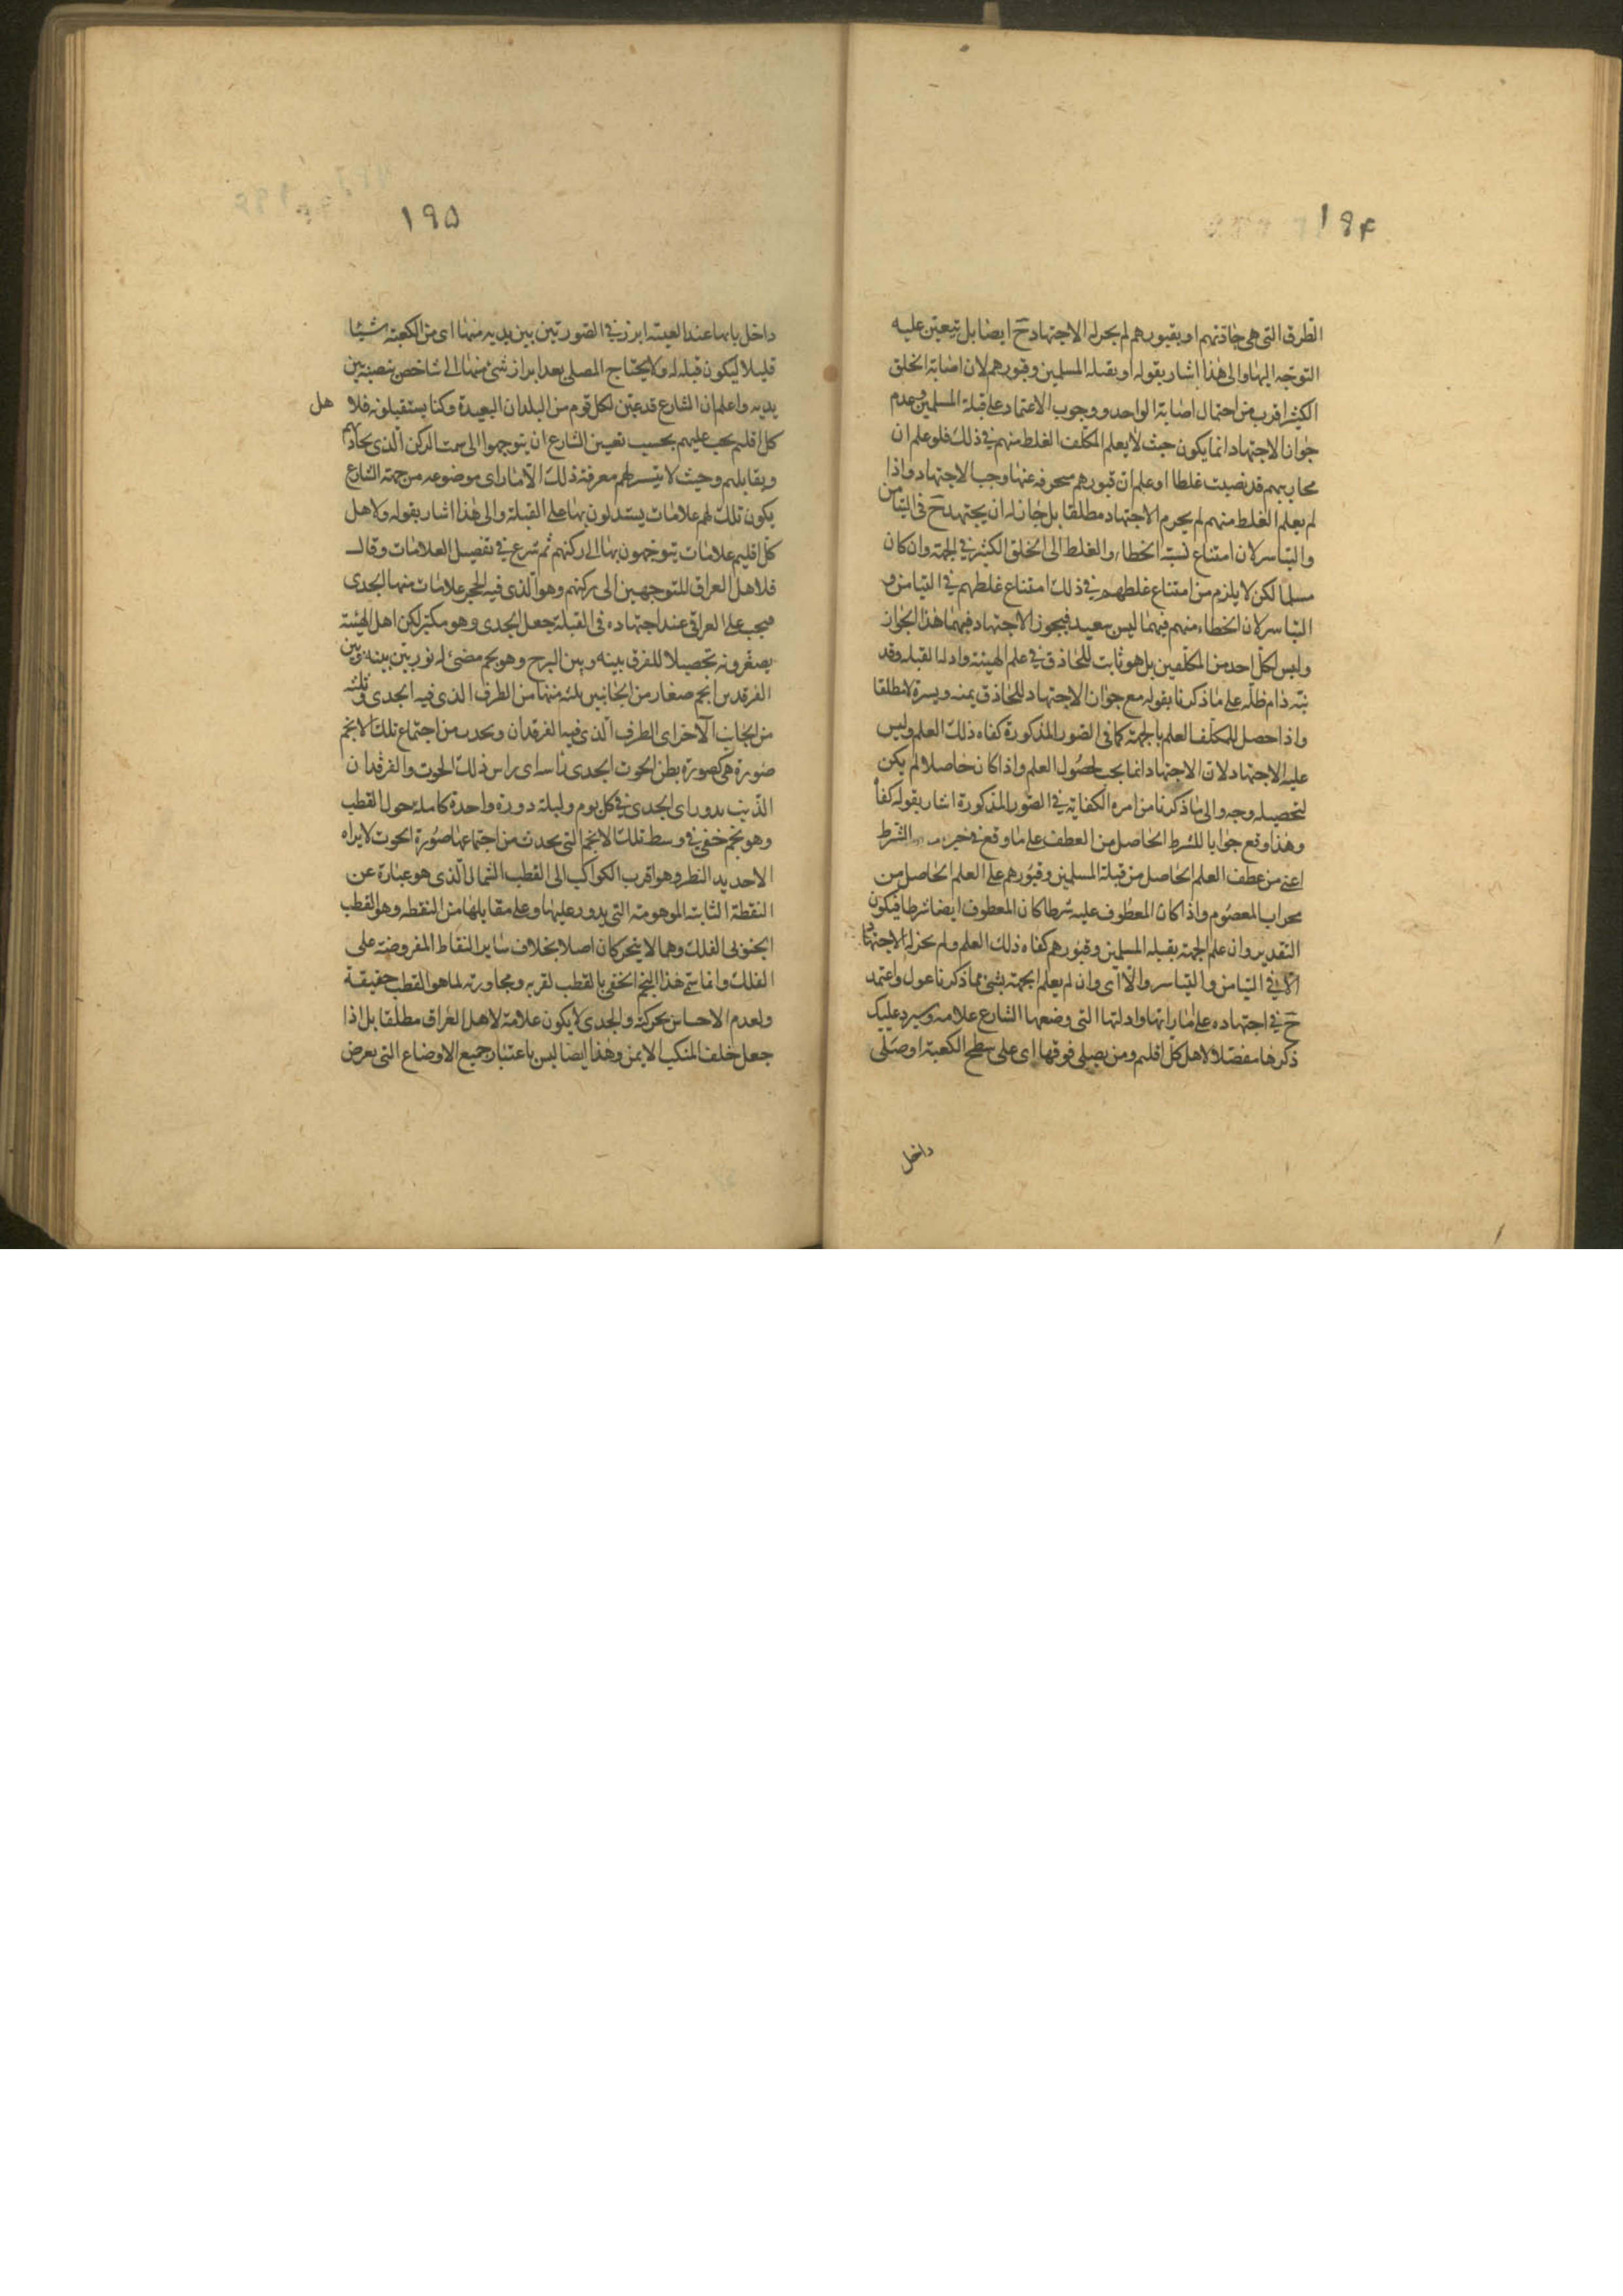 ۱۹۴
الطرق التى هى جادتهم او بقبورهم لم يجز له الاجتهاد ح ايضا بل يتعين عليه
التوجه اليها والى هذا اشار بقوله او بقبله المسلمين وقبورهم لان اصابة الخلق
الكثير اقرب من احتمال اصابة الواحد ووجوب الاعتماد على قبلة المسلمين وعدم
جواز الاجتهاد انما يكون حيث لا يعلم المكلف الغلط منهم فى ذلك فلو علم ان
محاريبهم قد نصبت غلطا او علم ان قبورهم منحرفة عنها وجب الاجتهاد واذا
لم يعلم الغلط منهم لم يحرم الاجتهاد مطلقا بل جاز له ان يجتهد ح فى التيامن
والتياسر لان امتناع نسبة الخطاء والغلط الى الخلق الكثير فى الجهة وان كان
مسلما لكن لا يلزم من امتناع غلطهم فى ذلك امتناع غلطهم فى التيامن و
التياسر لان الخطاء منهم فيهما ليس ببعيد فيجوز الاجتهاد فيهما هذا الجواز
وليس لكل احد من المكلفين بل هو ثابت للحاذق فى علم الهيئة وادلة القبلة وقد
نبه دام ظله على ما ذكرنا بقوله مع جواز الاجتهاد للحاذق يمنه ويسرة لا مطلقا
واذا حصل للمكلف العلم بالجهة كما فى الصور المذكورة كفاه ذلك العلم وليس
عليه الاجتهاد لان الاجتهاد انما يجب لحصول العلم واذا كان حاصلا لم يكن
لتحصيله وجه والى ما ذكرنا من امره الكفاية فى الصور المذكورة اشار بقوله كفا
وهذا وقع جوابا للشرط الحاصل من العطف على ما وقع فى خبر الشرط
اعنى من عطف العلم الحاصل من قبلة المسلمين وقبورهم على العلم الحاصل من
محراب المعصوم واذا كان المعطوف عليه شرطا كان المعطوف ايضا شرطا فيكون
التقدير وان علم الجهة بقبلة المسلمين وقبورهم كفاه ذلك العلم ولم يجز له الاجتهاد
الا فى التيامن والتياسر والا اى وان لم يعلم الجهة بشئ مما ذكرنا عول واعتمد
ح فى اجتهاده على اماراتها وادلتها التى وضعها الشارع علامة وسيرد عليك
ذكرها مفصلا لاهل كل اقليم ومن يصلى فوقها اى على سطح الكعبة او صلى
داخل
۱۹۵
داخل بابها عند العيبه ابرز فى الصورتين بين يديه منها اى من الكعبة شيئا
قليلا ليكون قبله له ولا يحتاج المصلى بعد ابراز شئ منها الى شاخص ينصبه بين
يديه واعلم ان الشارع قد عين لكل قوم من البلدان البعيدة ركنا يستقبلونه فلا هل
كل اقليم يجب عليهم بحسب تعيين الشارع ان يتوجهوا الى سمت الركن الذى يحاذيهم
ويقابلهم وحيث لا يتيسر لهم معرفة ذلك الا بامارات موضوعه من جهة الشارع
يكون تلك لهم علامات يستدلون بها على القبلة والى هذا اشار بقوله ولاهل
كل اقليم علامات يتوجهون بها الى ركنهم ثم شرع فى تفصيل العلامات وقال
فلاهل العراق المتوجهين الى ركنهم وهو الذى فيه الحجر علامات منها الجدى
فيجب على العراقى عند اجتهاده فى القبلة جعل الجدى وهو مكبر لكن اهل الهيئة
يصغرونه تحصيلا للفرق بينه وبين البرج وهو نجم مضئ له نور بين بينه وبين
الفرقدين انجم صغار من الجانبين ثلثه منها من الطرف الذى فيه الجدى وثلثه
من الجانب الآخر اى الطرف الذى فيه الفرقدان ويحدث من اجتماع تلك الانجم
صورة هى كصورة بطن الحوت الجدى رأسه اى راس ذلك الحوت والفرقدان
الذنب يدور اى الجدى فى كل يوم وليلة دورة واحدة كاملة حول القطب
وهو نجم خفى فى وسط تلك الانجم التى يحدث من اجتماعها صورة الحوت لا يراه
الا حديد النظر وهو اقرب الكواكب الى القطب الشمالى الذى هو عبارة عن
النقطة الثابتة الموهومة التى يدور عليها وعلى مقابلها من النقطة وهو القطب
الجنوبى الفلك وهما لا يتحركان اصلا بخلاف ساير النقاط المفروضة على
الفلك وانما سمى هذا النجم الخفى بالقطب لقربه ومجاورته لما هو القطب حقيقة
ولعدم الاحساس بحركته والجدى لا يكون علامة لاهل العراق مطلقا بل اذا
جعل خلف المنكب الايمن وهذا ايضا ليس باعتبار جميع الاوضاع التى يعرض